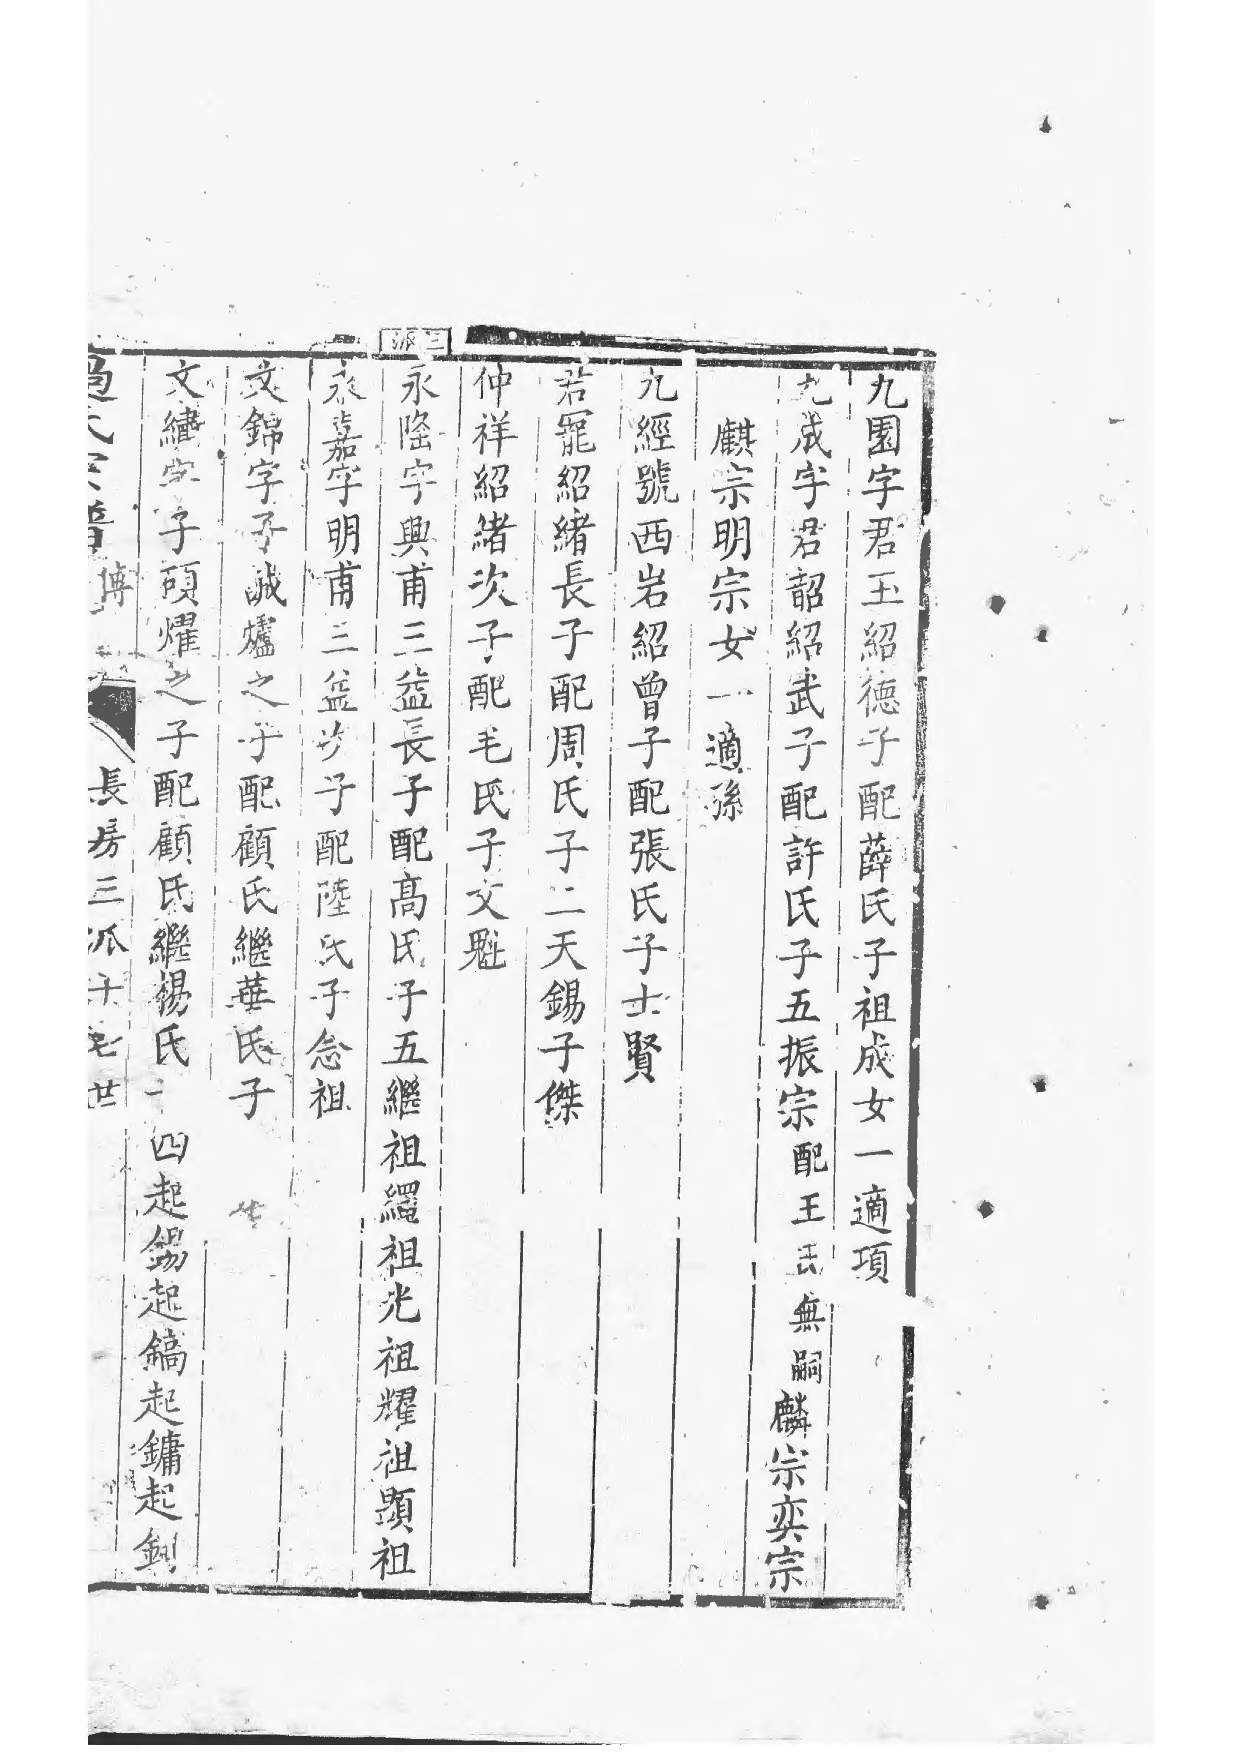 九園字君玉紹德子配薛氏子祖成女一適項
九成字君韶紹武子配許氏子五振宗配王氏無嗣麟宗奕宗
麒宗明宗女一適孫
九經號西岩紹曾子配張氏子士賢
君寵紹緒長子配周氏子二天錫子傑
仲祥紹緒次子配毛氏子文魁
三派
永隆字興甫三益長子配高氏子五繼祖繩祖光祖耀祖顯祖
永嘉字明甫三益次子配陸氏子念祖
文錦字子誠爐之子配顧氏繼華氏子
文繡字子碩燿之子配顧氏繼楊氏子四起錫起鎬起鏞起釧
過氏宗譜
傳
長房三派十七世